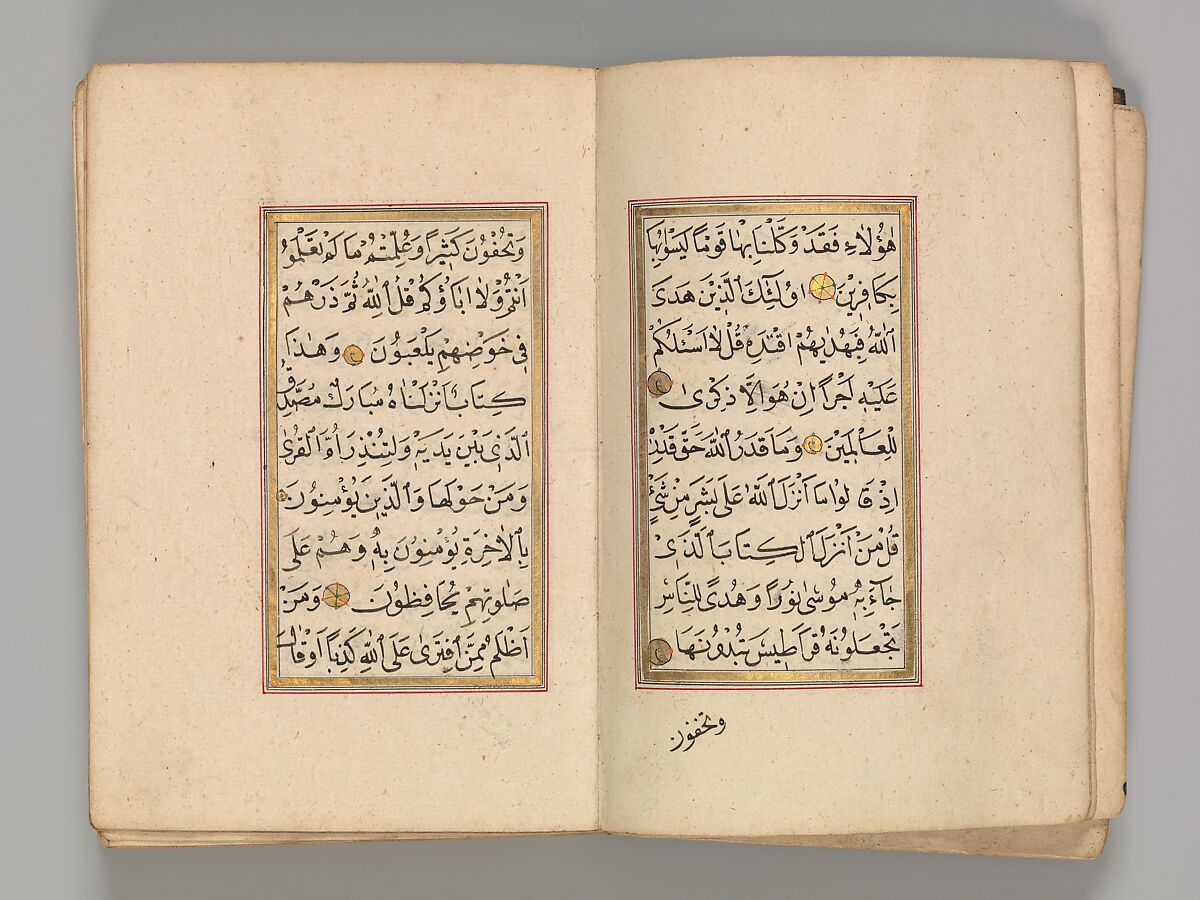 هٰؤُلَاءِ فَقَدْ وَكَّلْنَا بِهَا قَوْمًا لَيْسُوا بِهَا
بِكَافِرِينَ اُولٰئِكَ الَّذِينَ هَدَى
اللّٰهُ فَبِهُدٰيهُمُ اقْتَدِهْ قُلْ لَا اَسْئَلُكُمْ
عَلَيْهِ اَجْرًا اِنْ هُوَ اِلَّا ذِكْرٰى
لِلْعَالَمِينَ وَمَا قَدَرُوا اللّٰهَ حَقَّ قَدْرِهِ
اِذْ قَالُوا مَا اَنْزَلَ اللّٰهُ عَلٰى بَشَرٍ مِنْ شَيْءٍ
قُلْ مَنْ اَنْزَلَ الْكِتَابَ الَّذِي
جَاءَ بِهِ مُوسٰى نُورًا وَهُدًى لِلنَّاسِ
تَجْعَلُونَهُ قَرَاطِيسَ تُبْدُونَهَا
وتخفون
وَتُخْفُونَ كَثِيرًا وَعُلِّمْتُمْ مَا لَمْ تَعْلَمُوا
اَنْتُمْ وَلَا اٰبَاؤُكُمْ قُلِ اللّٰهُ ثُمَّ ذَرْهُمْ
فِي خَوْضِهِمْ يَلْعَبُونَ وَهٰذَا
كِتَابٌ اَنْزَلْنَاهُ مُبَارَكٌ مُصَدِّقُ
الَّذِي بَيْنَ يَدَيْهِ وَلِتُنْذِرَ اُمَّ الْقُرٰى
وَمَنْ حَوْلَهَا وَالَّذِينَ يُؤْمِنُونَ
بِالْاٰخِرَةِ يُؤْمِنُونَ بِهِ وَهُمْ عَلٰى
صَلٰوتِهِمْ يُحَافِظُونَ وَمَنْ
اَظْلَمُ مِمَّنِ افْتَرٰى عَلَى اللّٰهِ كَذِبًا اَوْ قَالَ